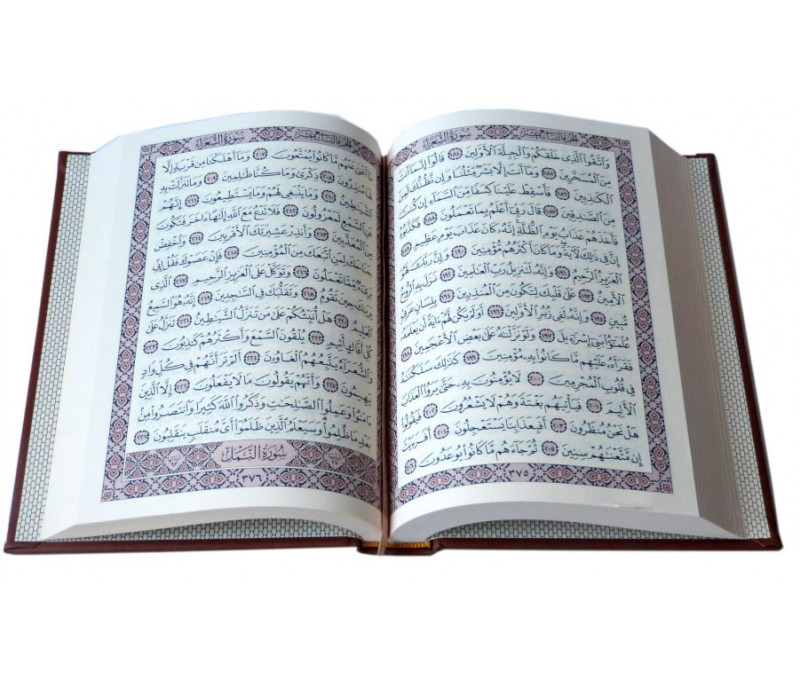 سُورَةُ الشُّعَرَاءِ
الجُزْءُ التَّاسِعَ عَشَرَ
وَٱتَّقُوا۟ ٱلَّذِى خَلَقَكُمْ وَٱلْجِبِلَّةَ ٱلْأَوَّلِينَ ١٨٤ قَالُوٓا۟ إِنَّمَآ أَنتَ
مِنَ ٱلْمُسَحَّرِينَ ١٨٥ وَمَآ أَنتَ إِلَّا بَشَرٌ مِّثْلُنَا وَإِن نَّظُنُّكَ لَمِنَ
ٱلْكَـٰذِبِينَ ١٨٦ فَأَسْقِطْ عَلَيْنَا كِسَفًا مِّنَ ٱلسَّمَآءِ إِن كُنتَ
مِنَ ٱلصَّـٰدِقِينَ ١٨٧ قَالَ رَبِّىٓ أَعْلَمُ بِمَا تَعْمَلُونَ ١٨٨ فَكَذَّبُوهُ
فَأَخَذَهُمْ عَذَابُ يَوْمِ ٱلظُّلَّةِ إِنَّهُۥ كَانَ عَذَابَ يَوْمٍ عَظِيمٍ ١٨٩
إِنَّ فِى ذَٰلِكَ لَـَٔايَةً وَمَا كَانَ أَكْثَرُهُم مُّؤْمِنِينَ ١٩٠ وَإِنَّ رَبَّكَ لَهُوَ
ٱلْعَزِيزُ ٱلرَّحِيمُ ١٩١ وَإِنَّهُۥ لَتَنزِيلُ رَبِّ ٱلْعَـٰلَمِينَ ١٩٢ نَزَلَ بِهِ ٱلرُّوحُ
ٱلْأَمِينُ ١٩٣ عَلَىٰ قَلْبِكَ لِتَكُونَ مِنَ ٱلْمُنذِرِينَ ١٩٤ بِلِسَانٍ عَرَبِىٍّ
مُّبِينٍ ١٩٥ وَإِنَّهُۥ لَفِى زُبُرِ ٱلْأَوَّلِينَ ١٩٦ أَوَلَمْ يَكُن لَّهُمْ ءَايَةً أَن يَعْلَمَهُۥ
عُلَمَـٰٓؤُا۟ بَنِىٓ إِسْرَٰٓءِيلَ ١٩٧ وَلَوْ نَزَّلْنَـٰهُ عَلَىٰ بَعْضِ ٱلْأَعْجَمِينَ ١٩٨
فَقَرَأَهُۥ عَلَيْهِم مَّا كَانُوا۟ بِهِۦ مُؤْمِنِينَ ١٩٩ كَذَٰلِكَ سَلَكْنَـٰهُ
فِى قُلُوبِ ٱلْمُجْرِمِينَ ٢٠٠ لَا يُؤْمِنُونَ بِهِۦ حَتَّىٰ يَرَوُا۟ ٱلْعَذَابَ
ٱلْأَلِيمَ ٢٠١ فَيَأْتِيَهُم بَغْتَةً وَهُمْ لَا يَشْعُرُونَ ٢٠٢ فَيَقُولُوا۟
هَلْ نَحْنُ مُنظَرُونَ ٢٠٣ أَفَبِعَذَابِنَا يَسْتَعْجِلُونَ ٢٠٤ أَفَرَءَيْتَ
إِن مَّتَّعْنَـٰهُمْ سِنِينَ ٢٠٥ ثُمَّ جَآءَهُم مَّا كَانُوا۟ يُوعَدُونَ ٢٠٦
٣٧٥
سُورَةُ الشُّعَرَاءِ
الجُزْءُ التَّاسِعَ عَشَرَ
مَآ أَغْنَىٰ عَنْهُم مَّا كَانُوا۟ يُمَتَّعُونَ ٢٠٧ وَمَآ أَهْلَكْنَا مِن قَرْيَةٍ إِلَّا
لَهَا مُنذِرُونَ ٢٠٨ ذِكْرَىٰ وَمَا كُنَّا ظَـٰلِمِينَ ٢٠٩ وَمَا تَنَزَّلَتْ بِهِ
ٱلشَّيَـٰطِينُ ٢١٠ وَمَا يَنۢبَغِى لَهُمْ وَمَا يَسْتَطِيعُونَ ٢١١ إِنَّهُمْ
عَنِ ٱلسَّمْعِ لَمَعْزُولُونَ ٢١٢ فَلَا تَدْعُ مَعَ ٱللَّهِ إِلَـٰهًا ءَاخَرَ فَتَكُونَ
مِنَ ٱلْمُعَذَّبِينَ ٢١٣ وَأَنذِرْ عَشِيرَتَكَ ٱلْأَقْرَبِينَ ٢١٤ وَٱخْفِضْ
جَنَاحَكَ لِمَنِ ٱتَّبَعَكَ مِنَ ٱلْمُؤْمِنِينَ ٢١٥ فَإِنْ عَصَوْكَ فَقُلْ إِنِّى
بَرِىٓءٌ مِّمَّا تَعْمَلُونَ ٢١٦ وَتَوَكَّلْ عَلَى ٱلْعَزِيزِ ٱلرَّحِيمِ ٢١٧ ٱلَّذِى
يَرَىٰكَ حِينَ تَقُومُ ٢١٨ وَتَقَلُّبَكَ فِى ٱلسَّـٰجِدِينَ ٢١٩ إِنَّهُۥ هُوَ ٱلسَّمِيعُ
ٱلْعَلِيمُ ٢٢٠ هَلْ أُنَبِّئُكُمْ عَلَىٰ مَن تَنَزَّلُ ٱلشَّيَـٰطِينُ ٢٢١ تَنَزَّلُ عَلَىٰ
كُلِّ أَفَّاكٍ أَثِيمٍ ٢٢٢ يُلْقُونَ ٱلسَّمْعَ وَأَكْثَرُهُمْ كَـٰذِبُونَ ٢٢٣
وَٱلشُّعَرَآءُ يَتَّبِعُهُمُ ٱلْغَاوُۥنَ ٢٢٤ أَلَمْ تَرَ أَنَّهُمْ فِى كُلِّ وَادٍ
يَهِيمُونَ ٢٢٥ وَأَنَّهُمْ يَقُولُونَ مَا لَا يَفْعَلُونَ ٢٢٦ إِلَّا ٱلَّذِينَ
ءَامَنُوا۟ وَعَمِلُوا۟ ٱلصَّـٰلِحَـٰتِ وَذَكَرُوا۟ ٱللَّهَ كَثِيرًا وَٱنتَصَرُوا۟ مِنۢ
بَعْدِ مَا ظُلِمُوا۟ وَسَيَعْلَمُ ٱلَّذِينَ ظَلَمُوٓا۟ أَىَّ مُنقَلَبٍ يَنقَلِبُونَ ٢٢٧
سُورَةُ النَّمْلِ
٣٧٦